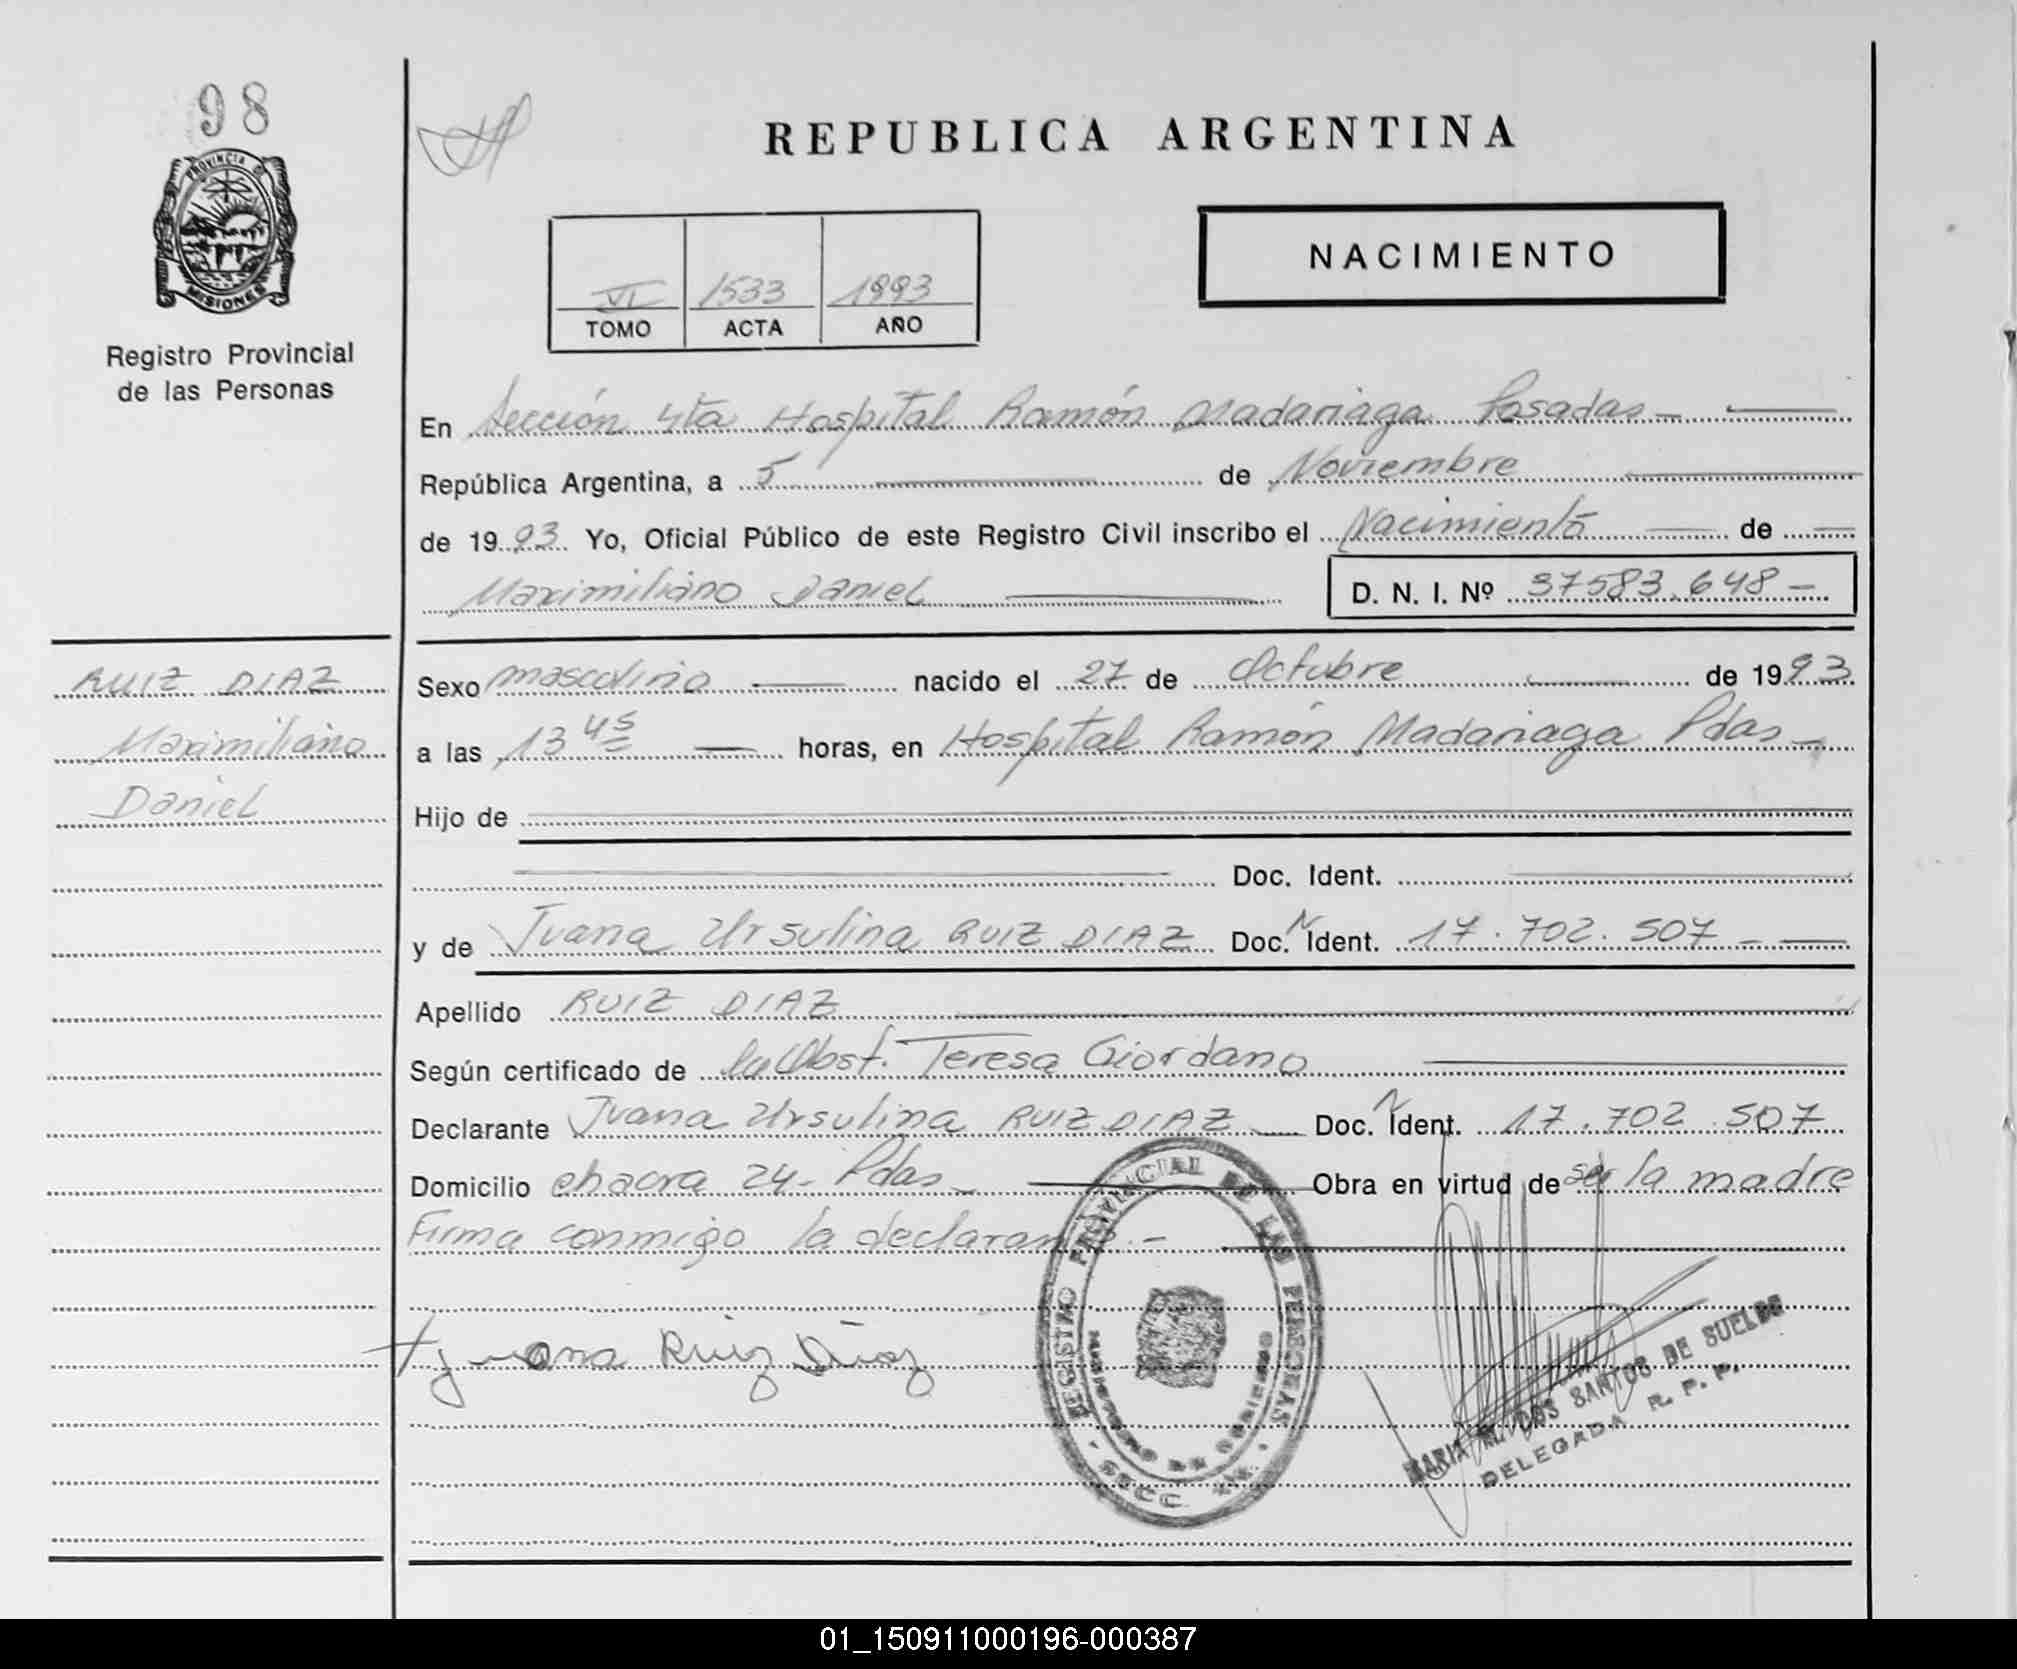 98
PROVINCIA DE
MISIONES
Registro Provincial
de las Personas
REPUBLICA ARGENTINA
NACIMIENTO
VI 1533 1993
TOMO ACTA AÑO
En Sección 4ta Hospital Ramón Madariaga Posadas
República Argentina, a 5 de Noviembre
de 1993 Yo, Oficial Público de este Registro Civil inscribo el Nacimiento de
Maximiliano Daniel D. N. I. Nº 37583.648
RUIZ DIAZ
Maximiliano
Daniel
Sexo masculino nacido el 27 de Octubre de 1993
a las 13 45 horas, en Hospital Ramón Madariaga Pdas
Hijo de
Doc. Ident.
y de Juana Ursulina RUIZ DIAZ Doc. N Ident. 17.702.507
Apellido RUIZ DIAZ
Según certificado de la Obst. Teresa Giordano
Declarante Juana Ursulina RUIZ DIAZ Doc. N Ident. 17.702.507
Domicilio chacra 24- Pdas Obra en virtud de ser la madre
Firma conmigo la declarante.-
Juana Ruiz Diaz
REGISTRO PROVINCIAL DE LAS PERSONAS
MINISTERIO DE GOBIERNO
SECC.
MARIA DOS SANTOS DE SUELDO
DELEGADA R. P. P.
01_150911000196-000387